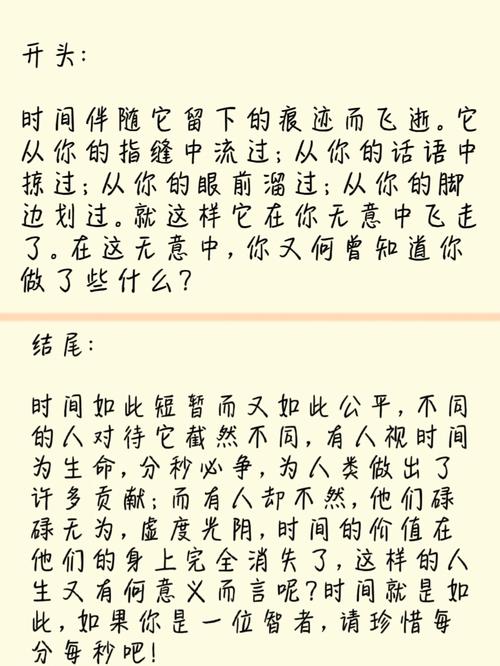 开头:
时间伴随它留下的痕迹而飞逝。它
从你的指缝中流过;从你的话语中
掠过;从你的眼前溜过;从你的脚
边划过。就这样它在你无意中飞走
了。在这无意中,你又何曾知道你
做了些什么?
结尾:
时间如此短暂而又如此公平,不同
的人对待它截然不同,有人视时间
为生命,分秒必争,为人类做出了
许多贡献;而有人却不然,他们碌
碌无为,虚度光阴,时间的价值在
他们的身上完全消失了,这样的人
生又有何意义而言呢?时间就是如
此,如果你是一位智者,请珍惜每
分每秒吧!